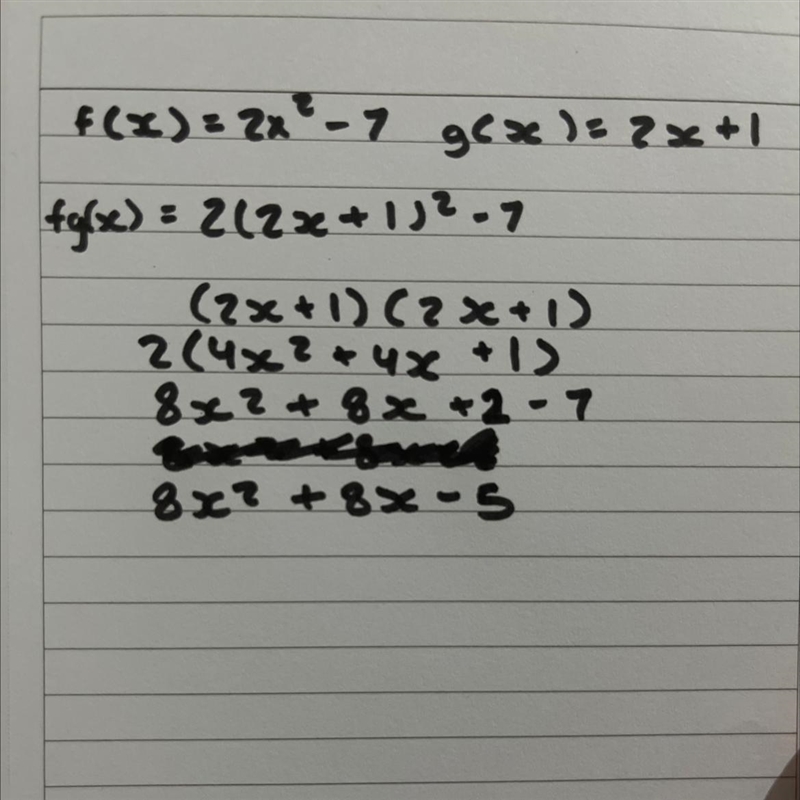 f(x) = 2x² - 7   g(x) = 2x + 1
fg(x) = 2(2x + 1)² - 7
(2x + 1)(2x + 1)
2(4x² + 4x + 1)
8x² + 8x + 2 - 7
8x² + 8x - 5